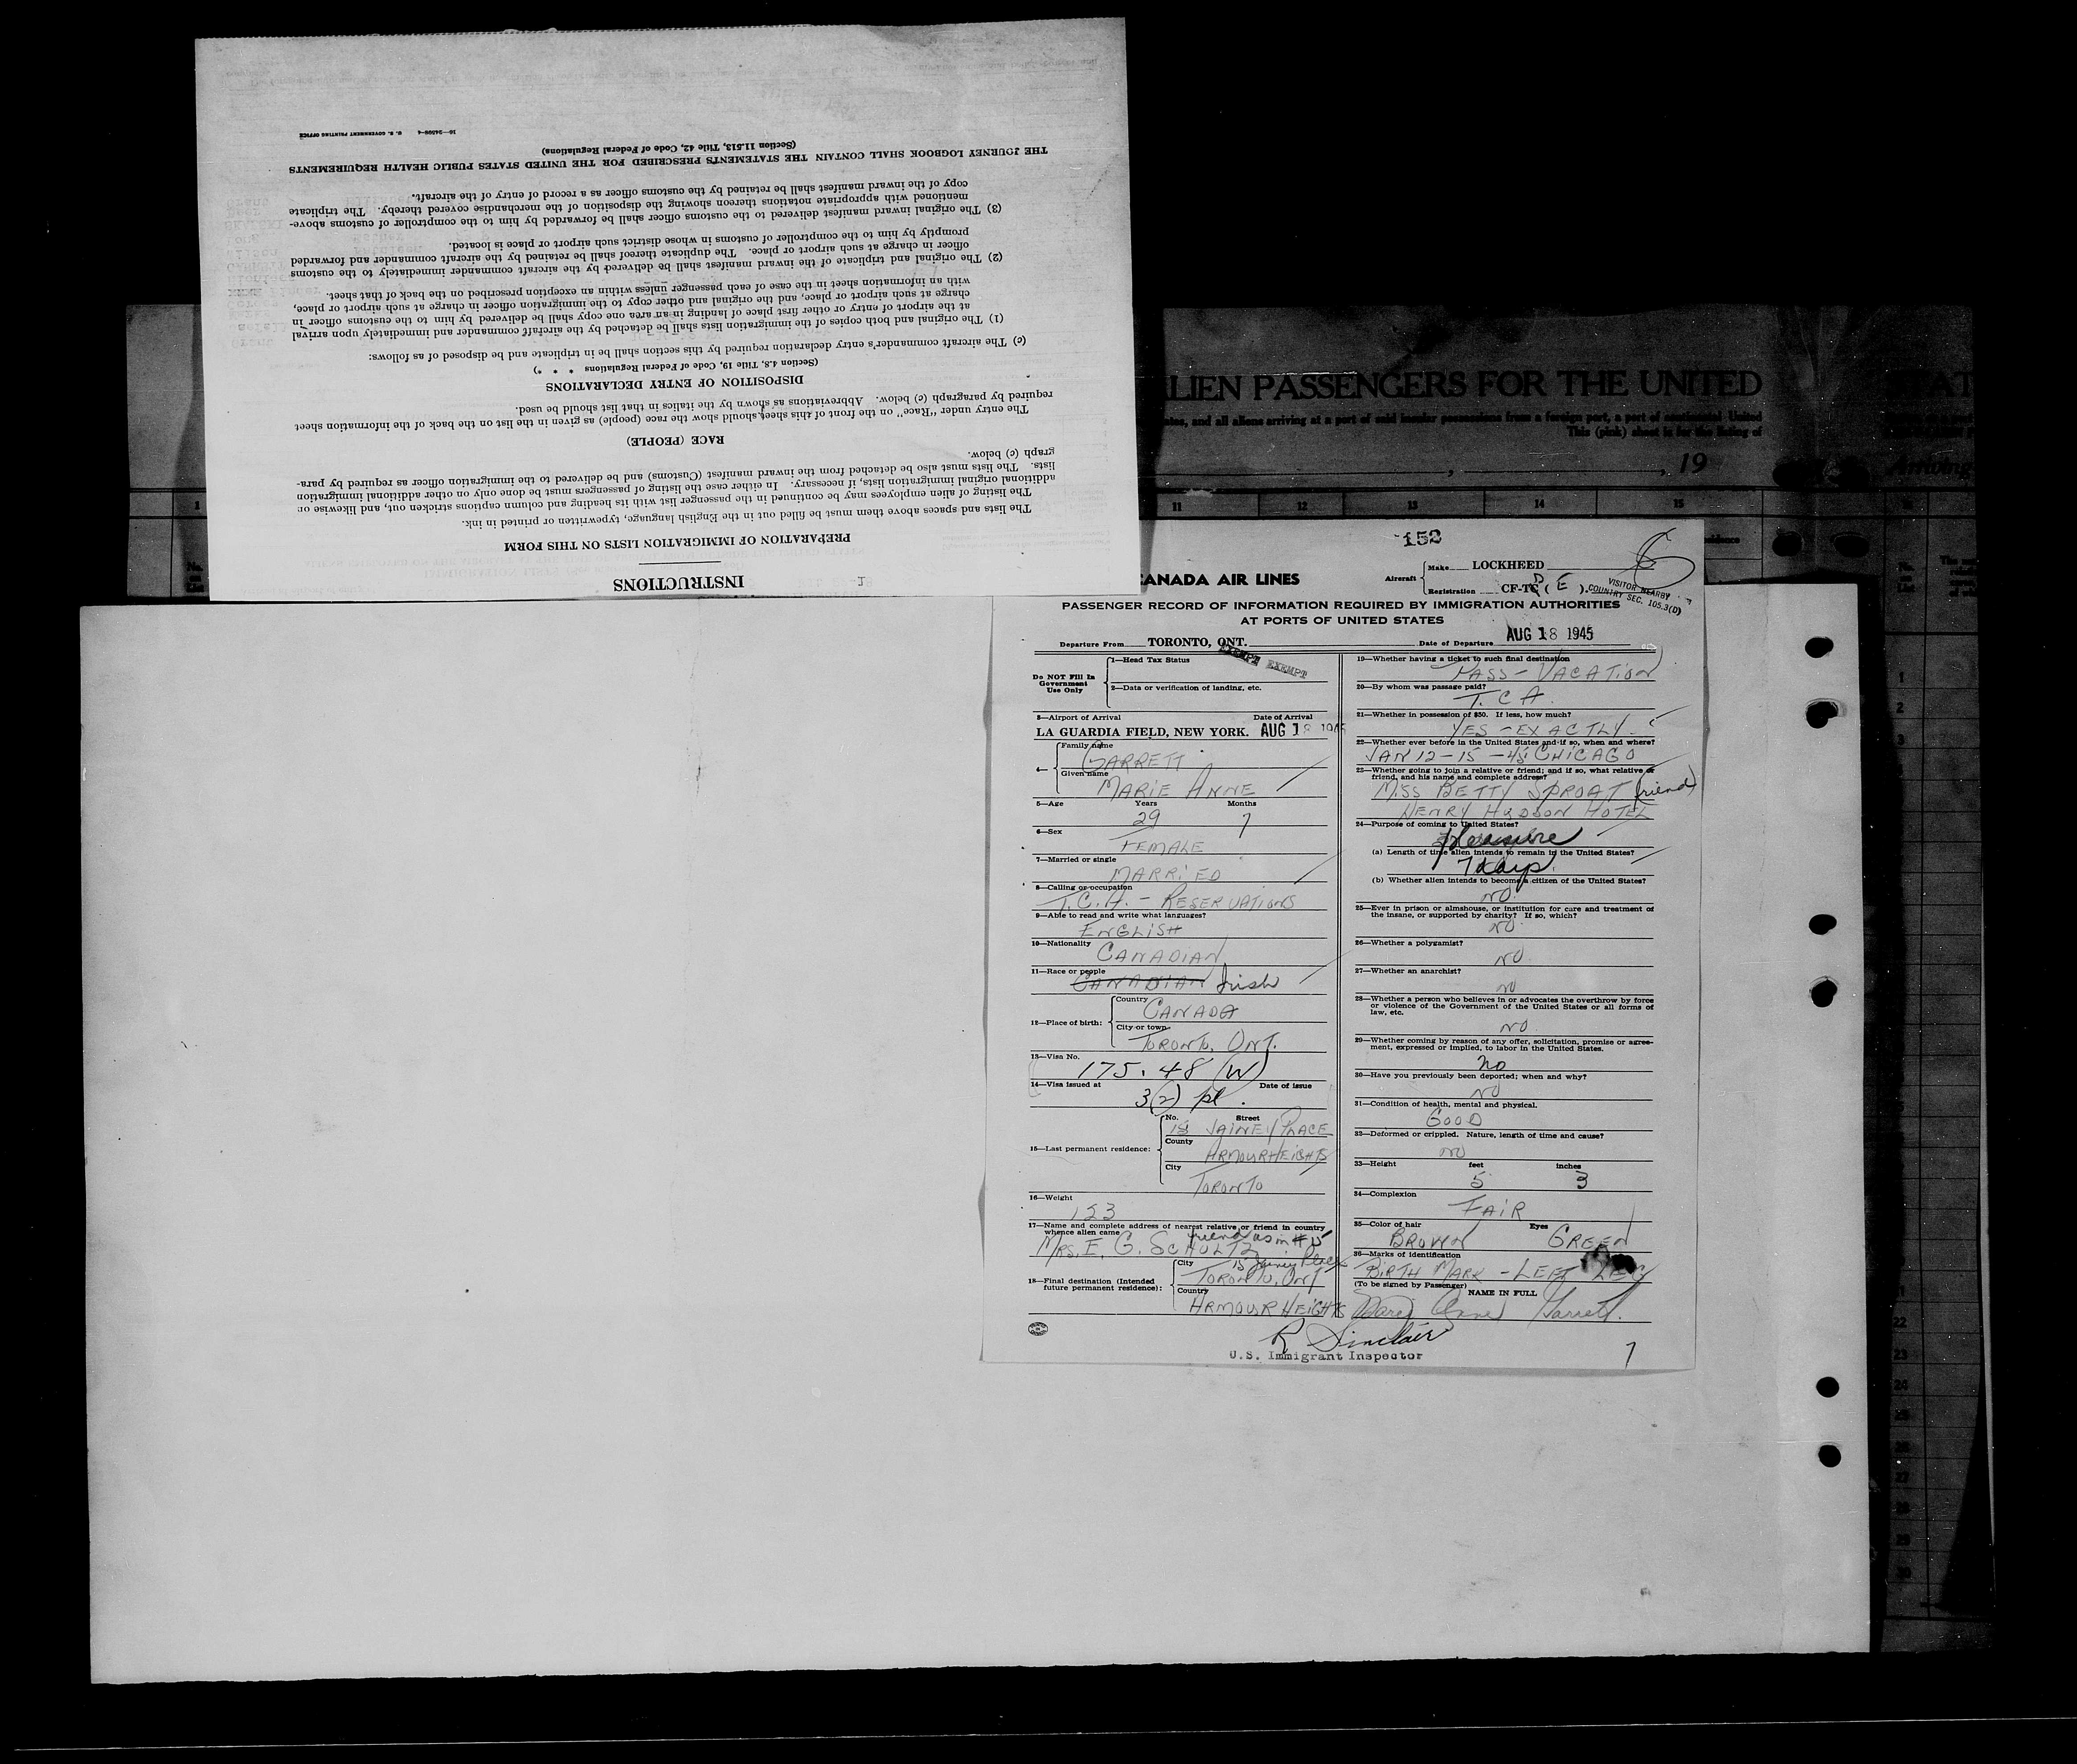 INSTRUCTIONS
PREPARATION OF IMMIGRATION LISTS ON THIS FORM
The lists and spaces above them must be filled out in the English language, typewritten or printed in ink.
The listing of alien employees may be continued in the passenger list with its heading and column captions stricken out, and likewise on
additional original immigration lists, if necessary. In either case the listing of passengers must be done only on other additional immigration
lists. The lists must also be detached from the inward manifest (Customs) and be delivered to the immigration officer as required by para-
graph (c) below.
RACE (PEOPLE)
The entry under "Race" on the front of this sheet should show the race (people) as given in the list on the back of the information sheet
required by paragraph (c) below. Abbreviations as shown by the italics in that list should be used.
DISPOSITION OF ENTRY DECLARATIONS
(Section 4.8, Title 19, Code of Federal Regulations * * *)
(c) The aircraft commander's entry declaration required by this section shall be in triplicate and be disposed of as follows:
(1) The original and both copies of the immigration lists shall be detached by the aircraft commander and immediately upon arrival
at the airport of entry or other first place of landing in an area one copy shall be delivered by him to the customs officer in
charge at such airport or place, and the original and other copy to the immigration officer in charge at such airport or place,
with an information sheet in the case of each passenger unless within an exception prescribed on the back of that sheet.
(2) The original and triplicate of the inward manifest shall be delivered by the aircraft commander immediately to the customs
officer in charge at such airport or place. The duplicate thereof shall be retained by the aircraft commander and forwarded
promptly by him to the comptroller of customs in whose district such airport or place is located.
(3) The original inward manifest delivered to the customs officer shall be forwarded by him to the comptroller of customs above-
mentioned with appropriate notations thereon showing the disposition of the merchandise covered thereby. The triplicate
copy of the inward manifest shall be retained by the customs officer as a record of entry of the aircraft.
THE JOURNEY LOGBOOK SHALL CONTAIN THE STATEMENTS PRESCRIBED FOR THE UNITED STATES PUBLIC HEALTH REQUIREMENTS
(Section 11.513, Title 42, Code of Federal Regulations)
U. S. GOVERNMENT PRINTING OFFICE 16—24506-4
ALIEN PASSENGERS FOR THE UNITED STAT
ates, and all aliens arriving at a port of said insular possessions from a foreign port, a part of continental United
This (pink) sheet is for the listing of
, 19 Arriving
11 12 13 14 15
152
CANADA AIR LINES
Aircraft Make LOCKHEED
Registration CF-TC ( E ).
VISITOR NEARBY
COUNTRY SEC. 105.3(D)
PASSENGER RECORD OF INFORMATION REQUIRED BY IMMIGRATION AUTHORITIES
AT PORTS OF UNITED STATES
Departure From TORONTO, ONT. Date of Departure AUG 18 1945
Do NOT Fill In Government Use Only
1—Head Tax Status EXEMPT EXEMPT
2—Data or verification of landing, etc.
3—Airport of Arrival Date of Arrival
LA GUARDIA FIELD, NEW YORK. AUG 18 1945
4— Family name GARRETT
Given name MARIE ANNE
5—Age Years 29 Months 7
6—Sex FEMALE
7—Married or single MARRIED
8—Calling or occupation T.C.A. - RESERVATIONS
9—Able to read and write what languages? ENGLISH
10—Nationality CANADIAN
11—Race or people CANADIAN Irish
12—Place of birth: Country CANADA
City or town TORONTO, ONT.
13—Visa No. 175.48 (W)
14—Visa issued at Date of issue
3(2) pl.
15—Last permanent residence: No. Street
PLACE
County ARMOUR HEIGHTS
City TORONTO
16—Weight 123
17—Name and complete address of nearest relative or friend in country
whence alien came friend as in # 15
MRS. E. G. SCHULTZ
15 Place
18—Final destination (Intended future permanent residence): City TORONTO, ONT
Country ARMOUR HEIGHTS
19—Whether having a ticket to such final destination
PASS - VACATION
20—By whom was passage paid?
T.C.A.
21—Whether in possession of $50. If less, how much?
YES - EXACTLY.
22—Whether ever before in the United States and if so, when and where?
JAN 12-15-45 CHICAGO
23—Whether going to join a relative or friend; and if so, what relative or
friend, and his name and complete address?
MISS BETTY SPROAT friend
HENRY HUDSON HOTEL
24—Purpose of coming to United States?
pleasure
(a) Length of time alien intends to remain in the United States?
7 days
(b) Whether alien intends to become a citizen of the United States?
NO.
25—Ever in prison or almshouse, or institution for care and treatment of
the insane, or supported by charity? If so, which?
NO
26—Whether a polygamist?
NO
27—Whether an anarchist?
NO
28—Whether a person who believes in or advocates the overthrow by force
or violence of the Government of the United States or all forms of
law, etc.
NO
29—Whether coming by reason of any offer, solicitation, promise or agree-
ment, expressed or implied, to labor in the United States.
No
30—Have you previously been deported; when and why?
NO
31—Condition of health, mental and physical.
GOOD
32—Deformed or crippled. Nature, length of time and cause?
NO
33—Height feet 5 inches 3
34—Complexion FAIR
35—Color of hair BROWN Eyes GREEN
36—Marks of identification
BIRTH MARK - LEFT LEG
(To be signed by Passenger) NAME IN FULL
Marie Anne Garrett.
R Sinclair
U.S. Immigrant Inspector
7